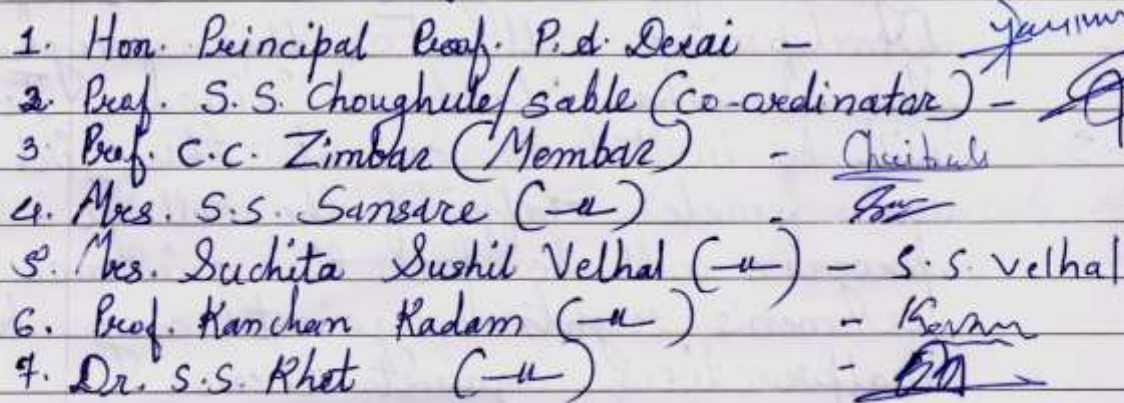 1. Hon. Principal Prof. P.d. Desai -
2. Prof. S.S. Choughule/sable (co-ordinator) -
3. Prof. C.C. Zimbar (Membar) -
4. Mrs. S.S. Sansare (-u-) -
5. Mrs. Suchita Sushil Velhal (-u-) - S.S. Velhal
6. Prof. Kanchan Kadam (-u-) -
7. Dr. S.S. Khot (-u-) -